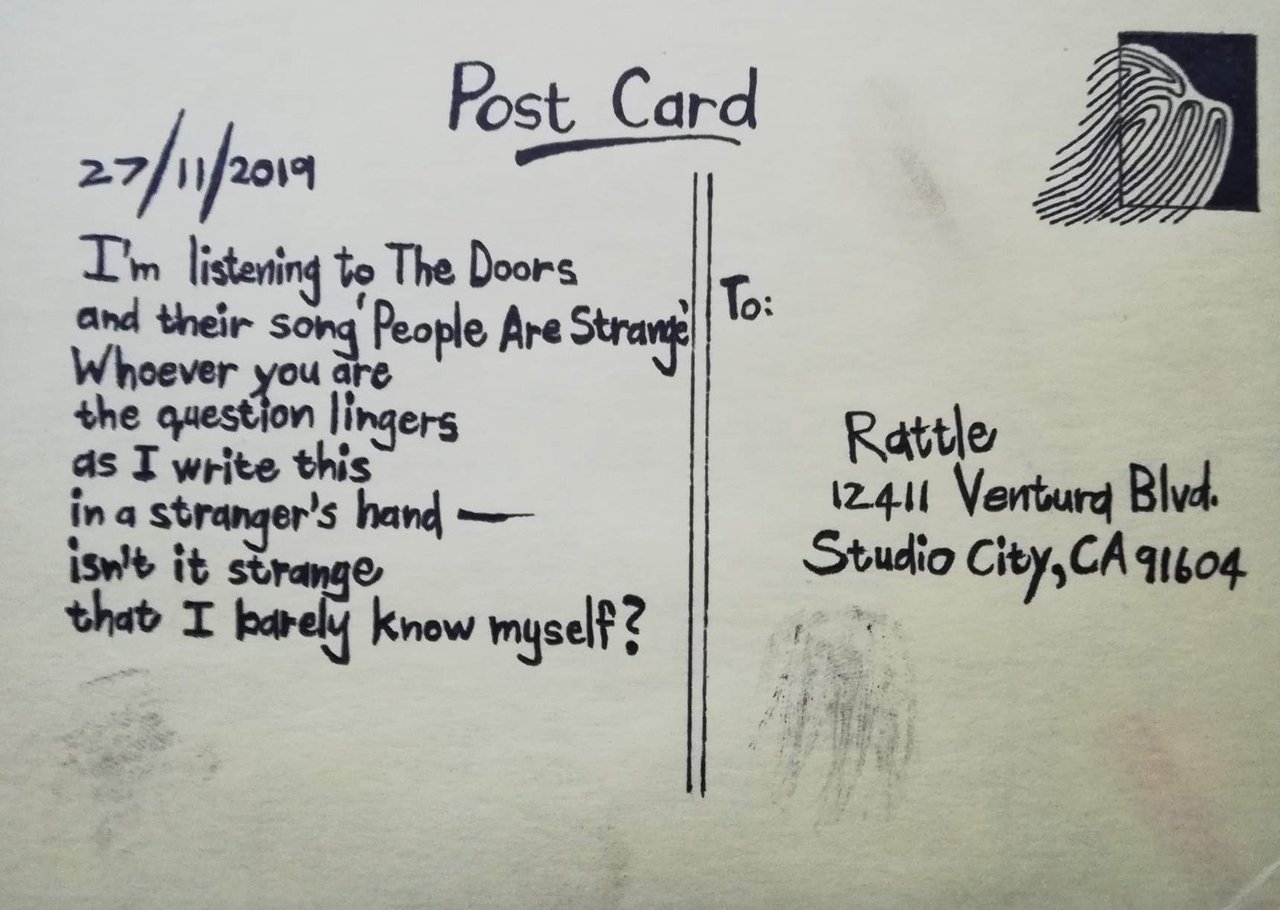 Post Card
27/11/2019
I'm listening to The Doors
and their song 'People Are Strange'
Whoever you are
the question lingers
as I write this
in a stranger's hand —
isn't it strange
that I barely know myself?
To:
Rattle
12411 Ventura Blvd.
Studio City, CA 91604